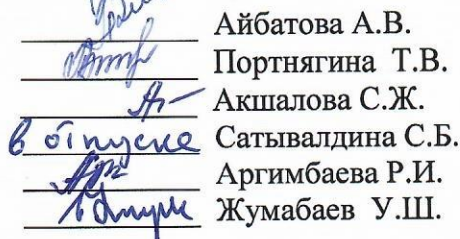 Айбатова А.В.
Портнягина Т.В.
Акшалова С.Ж.
в отпуске Сатывалдина С.Б.
Аргимбаева Р.И.
в отпуске Жумабаев У.Ш.